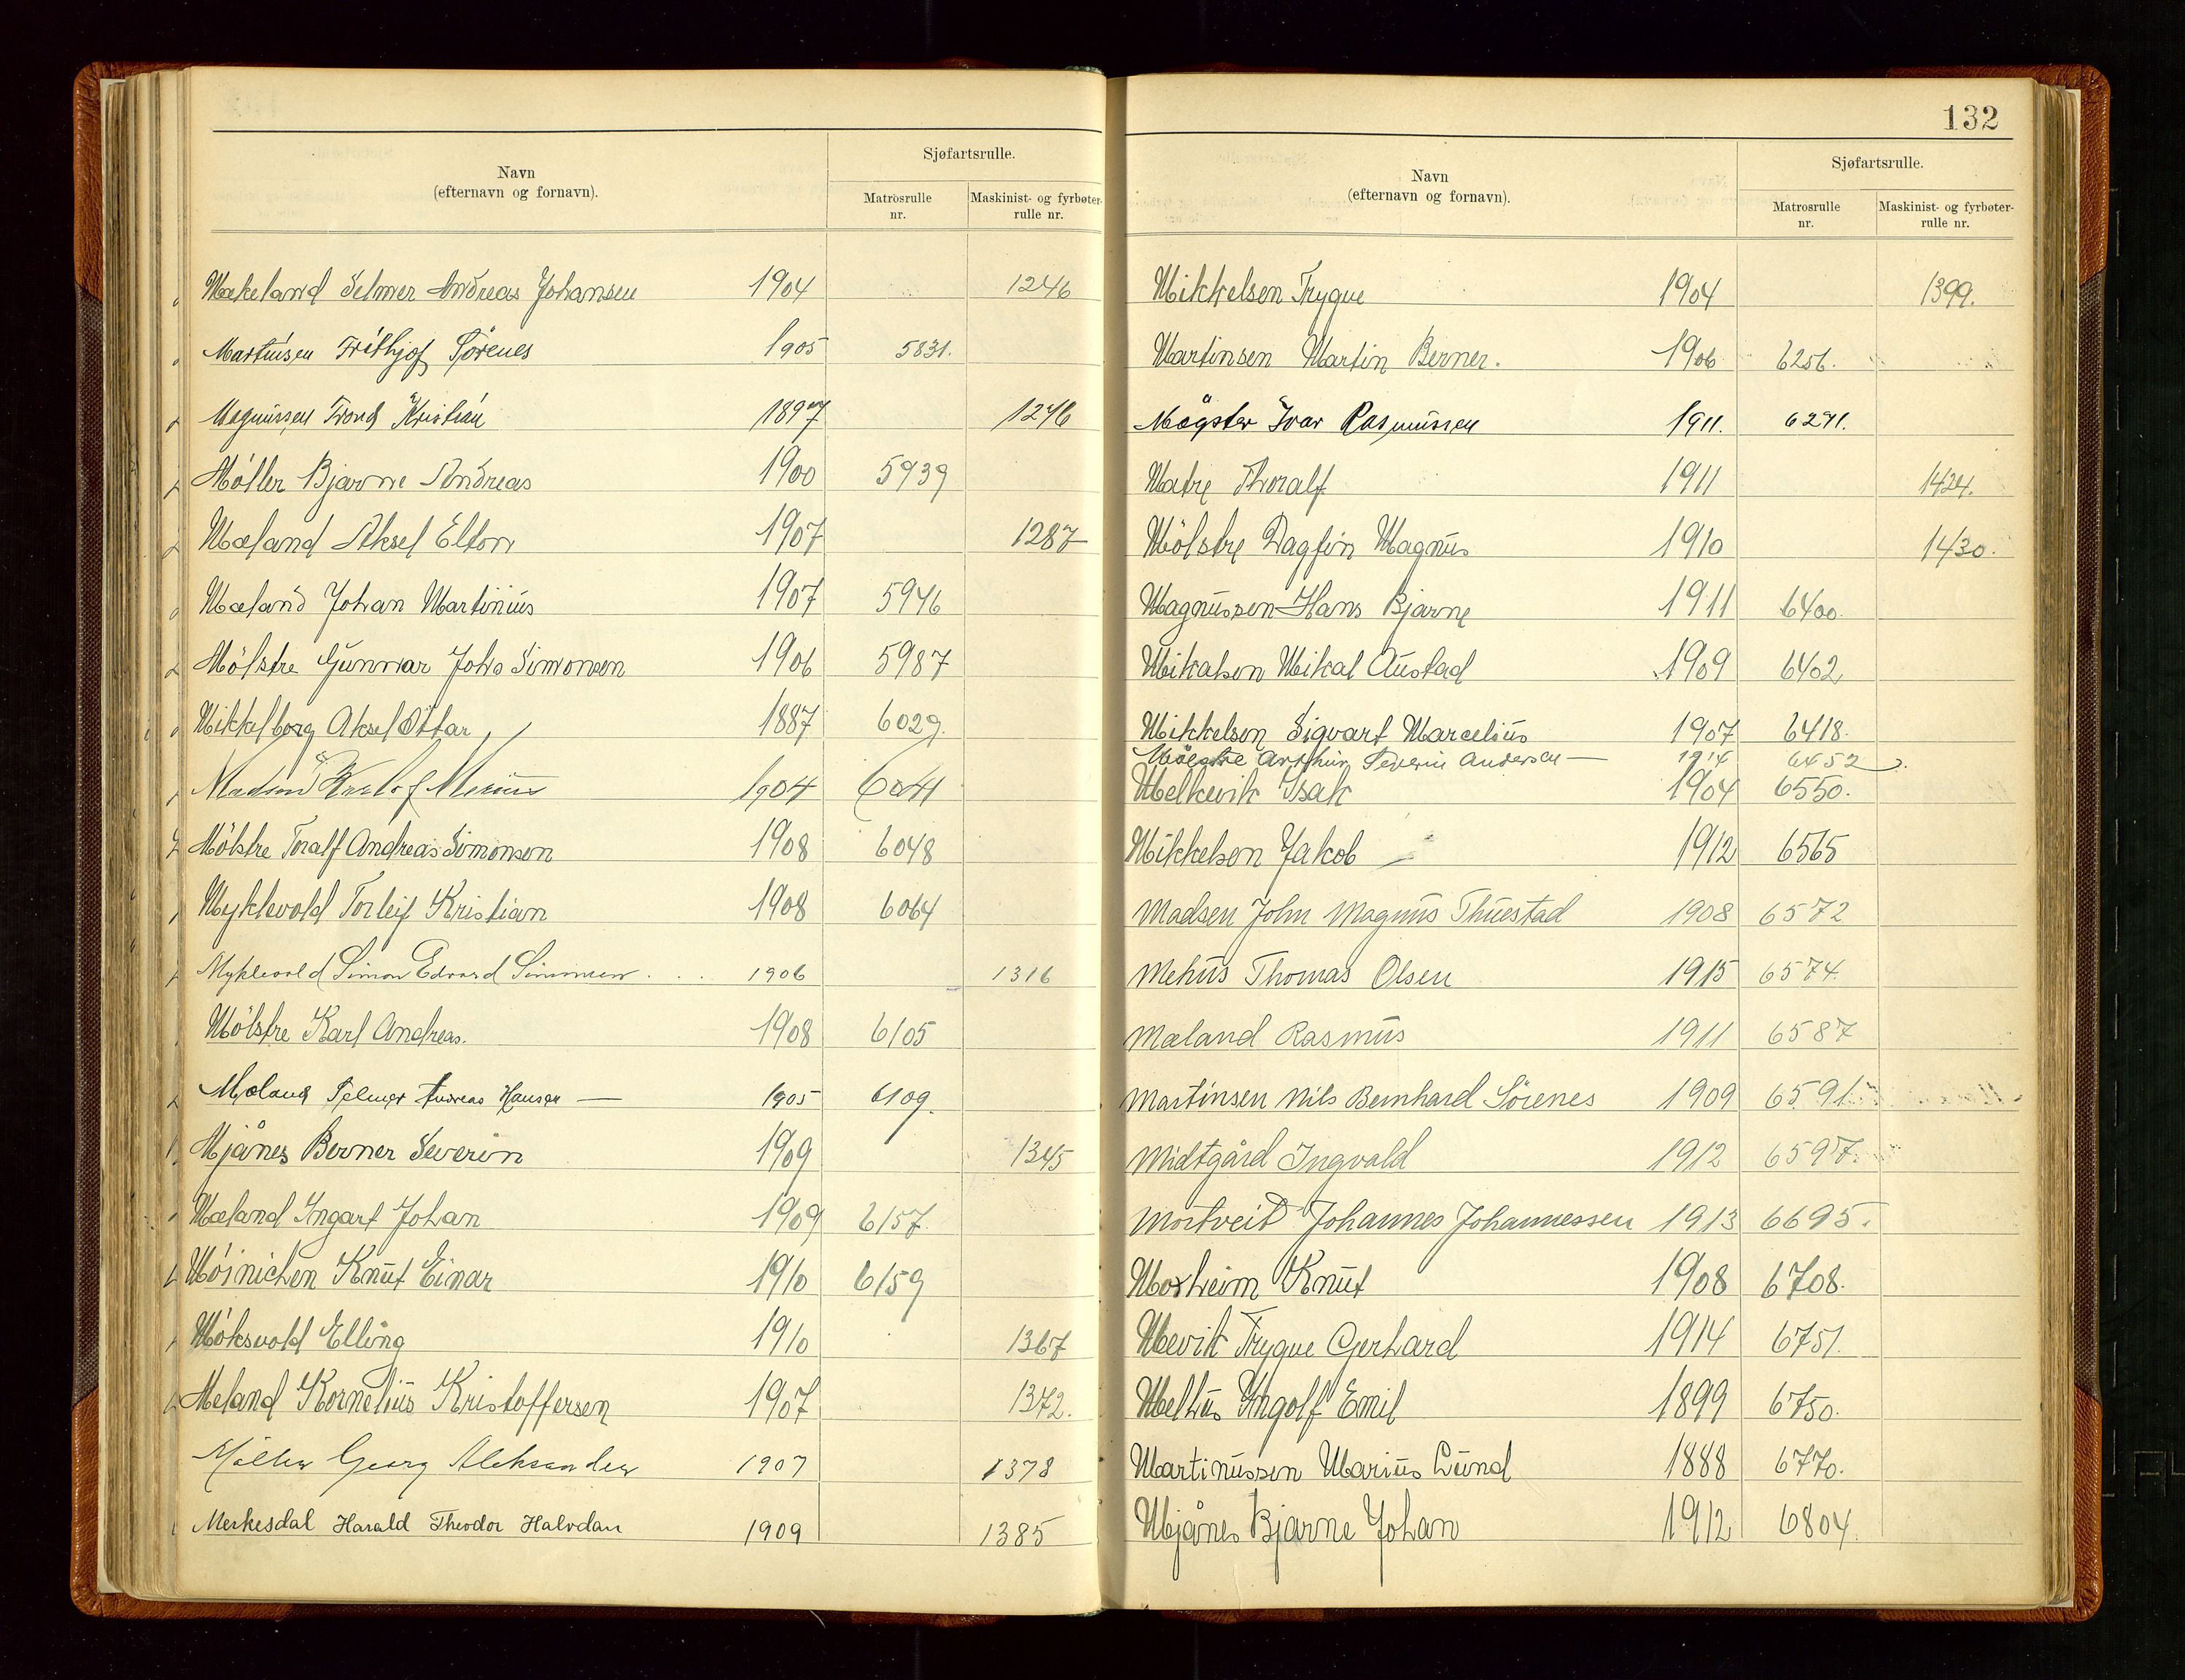 132
Navn
(efternavn og fornavn).
Sjøfartsrulle.
Matrosrulle
nr.
Maskinist- og fyrbøter-
rulle nr.
Mækeland Selmer Andreas Johansen 1904 1246
Martinsen Frithjof Sörenes 1905 5831.
Magnussen Trond Kristian 1897 1276
Möller Bjarne Andreas 1900 5939
Mæland Aksel Elton 1907 1287
Mæland Johan Martinius 1907 5946
Mölstre Gunnar Johs Simonsen 1906 5987
Mikkelborg Aksel Ottar 1887 6029.
Madsen 1904 6041
Mölstre Toralf Andreas Simonsen 1908 6048
Myklevold Torleif Kristian 1908 6064
Myklevold Simon Edvard Simonsen 1906 1316
Mölstre Karl Andreas. 1908 6105
Mæland Selmer Andreas Hansen — 1905 6109.
Mjånes Berner Severin 1909 1345
Mæland Ingart Johan 1909 6157.
Möinichen Knut Einar 1910 6159
Möksvold Elling 1910 1367
Meland Kornelius Kristoffersen 1907 1372.
Möller Georg Aleksander 1907 1378
Merkesdal Harald Theodor Halvdan 1909 1385
Navn
(efternavn og fornavn).
Sjøfartsrulle.
Matrosrulle
nr.
Maskinist- og fyrbøter-
rulle nr.
Mikkelsen Trygve 1904 1399.
Martinsen Martin Berner. 1906 6256.
Mögster Ivar Rasmussen 1911. 6291.
Matre Thoralf 1911 1424.
Mölstre Dagfin Magnus 1910 1430.
Magnussen Hans Bjarne 1911 6400.
Mikalsen Mikal Austad 1909 6402
Mikkelsen Sigvart Marcelius 1907 6418.
Mölstre Arthur Severin Andersen — 1914 6452.
Melkevik Isak 1904 6550.
Mikkelsen Jakob 1912 6565
Madsen John Magnus Thuestad 1908 6572
Mehus Thomas Olsen 1915 6574.
Mæland Rasmus 1911 6587
Martinsen Nils Bernhard Sörenes 1909 6591.
Midtgård Ingvald 1912 6597.
Mortveit Johannes Johannessen 1913 6695.
Moxheim Knut 1908 6708.
Mevik Trygve Gerhard 1914 6751.
Melhus Yngolf Emil 1899 6750.
Martinussen Marius Lund 1888 6770.
Mjånes Bjarne Johan 1912 6804.